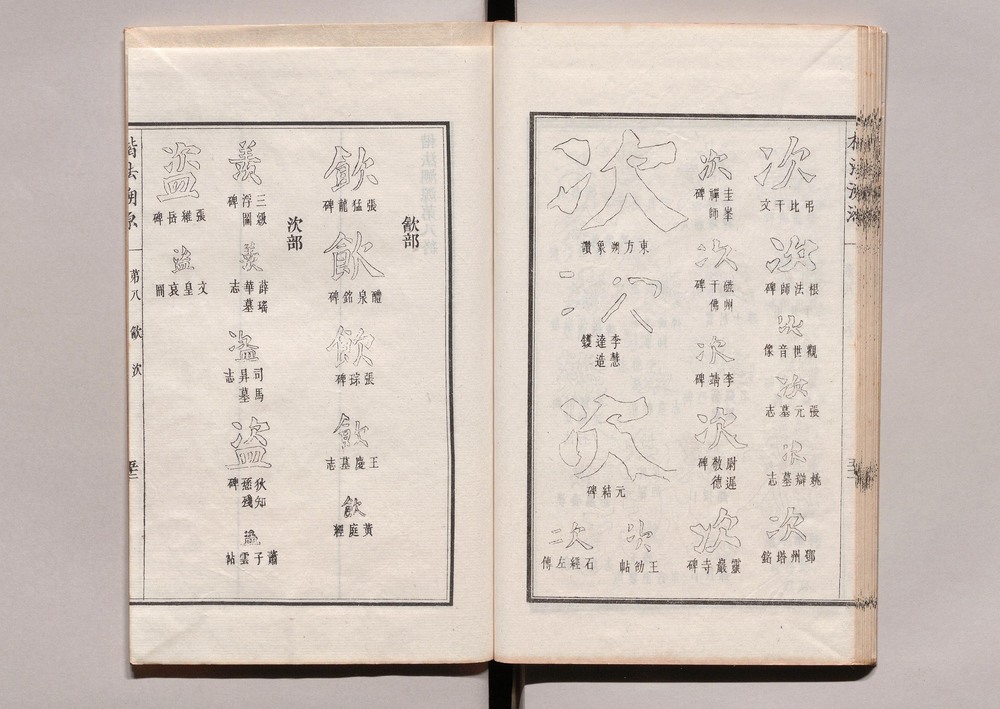 楷法溯源
次
弔比干文
次
根法師碑
次
觀世音像
次
張元墓志
次
姚辯墓志
次
鄧州塔銘
次
圭峯禪師碑
次
磁州千佛碑
次
李靖碑
次
尉遲敬德碑
次
靈巖寺碑
次
東方朔象讚
次
李慧達造
次
元結碑
次
王劭帖
次
石經左傳
㱃部
飲
張猛龍碑
飲
醴泉銘碑
飲
張琮碑
飲
王慶墓志
飲
黃庭經
㳄部
羨
三級浮圖碑
羨
薛瑤華墓志
盜
司馬昇墓志
盜
狄知愻殘碑
蕭子雲帖
盜
張維岳碑
盜
文皇哀冊
楷法溯源
第八 㱃 㳄